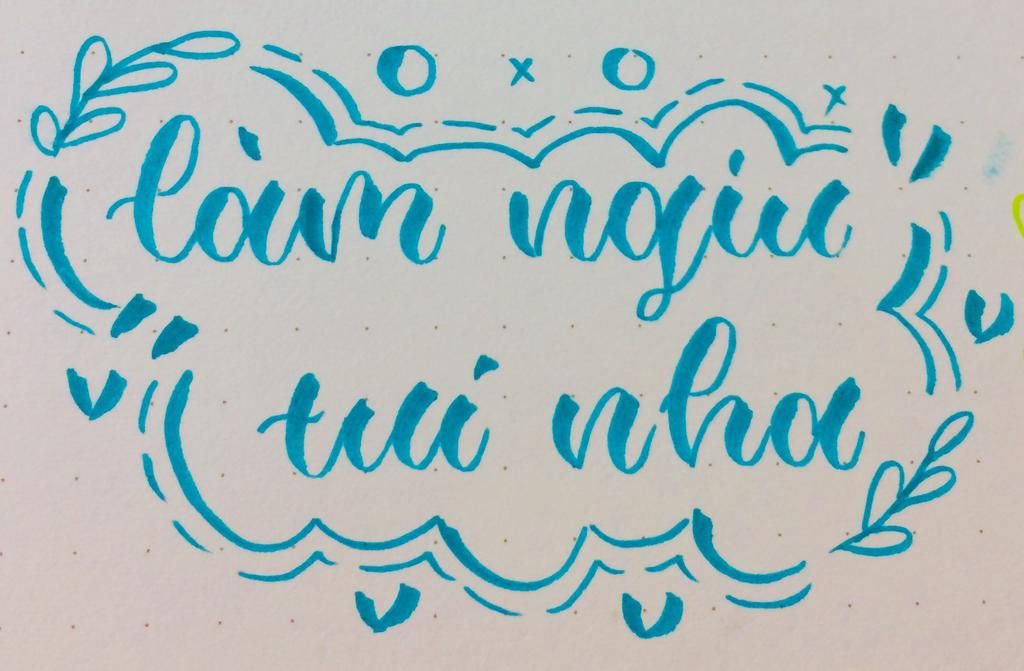 làm ngiu
tui nha